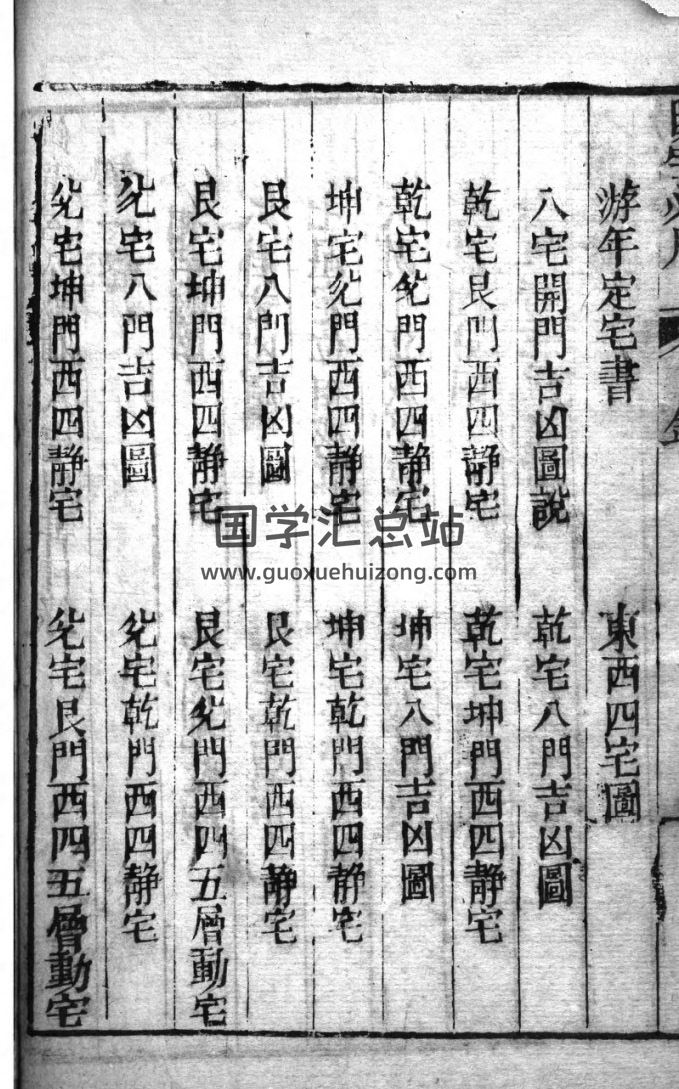 游年定宅書　東西四宅圖
八宅開門吉凶圖說　乾宅八門吉凶圖
乾宅艮門西四静宅　乾宅坤門西四静宅
乾宅兊門西四静宅　坤宅八門吉凶圖
坤宅兊門西四静宅　坤宅乾門西四静宅
艮宅八門吉凶圖　艮宅乾門西四静宅
艮宅坤門西四静宅　艮宅兊門西四五層動宅
兊宅八門吉凶圖　兊宅乾門西四静宅
兊宅坤門西四静宅　兊宅艮門西四五層動宅
国学汇总站
www.guoxuehuizong.com